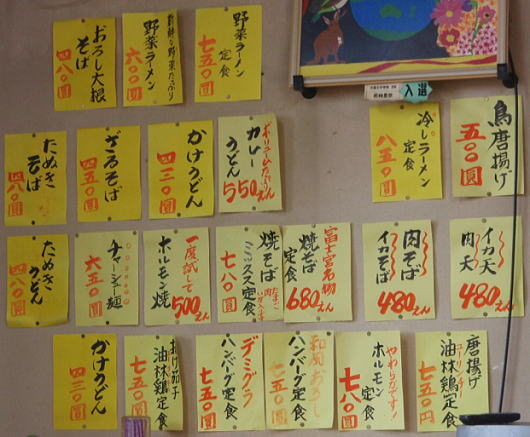 野菜ラーメン
定食
七五〇圓
新鮮な野菜たっぷり
野菜ラーメン
六〇〇圓
おろし大根
そば
四八〇圓
入選
鳥唐揚げ
五〇〇圓
冷しラーメン
定食
八五〇圓
カレー
うどん
550えん
かけうどん
四三〇圓
ざるそば
四五〇圓
たぬき
そば
四八〇圓
イカ天
肉天
480えん
肉そば
イカそば
480えん
富士宮名物
焼そば
定食
680えん
焼そば
ミックス定食
七八〇圓
一度試して
ホルモン
焼
500えん
チャーシュー麺
六五〇圓
たぬき
うどん
四八〇圓
唐揚げ
油林鶏定食
七五〇円
やわらかです!
ホルモン
定食
七八〇圓
和風おろし
ハンバーグ定食
七五〇圓
デミグラ
ハンバーグ定食
七五〇圓
揚げ茄子
油林鶏定食
七五〇圓
かけうどん
四三〇圓